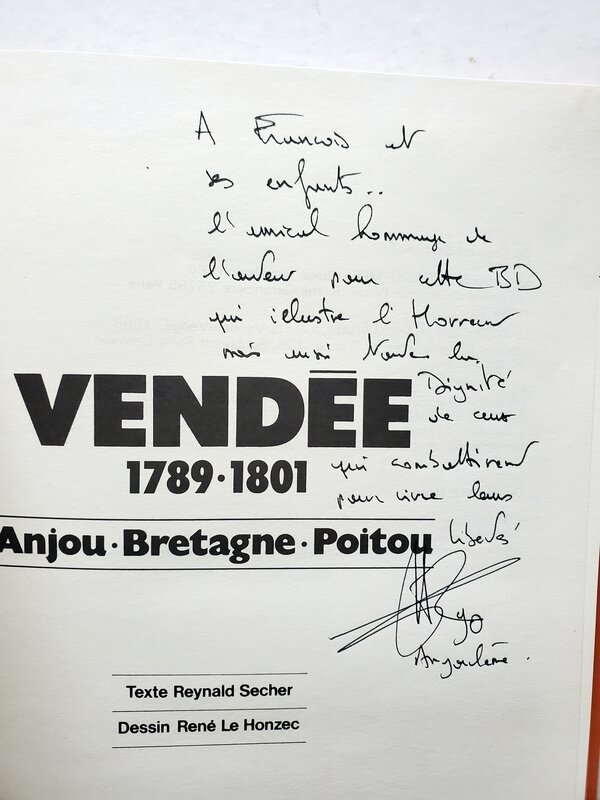 A François et
ses enfants..
l'amical hommage de
l'auteur pour cette BD
qui illustre l'Horreur
mais aussi toute la
Dignité
de ceux
qui combattirent
pour vivre leurs
libertés
VENDÉE
1789·1801
Anjou·Bretagne·Poitou
Angoulême.
Texte Reynald Secher
Dessin René Le Honzec